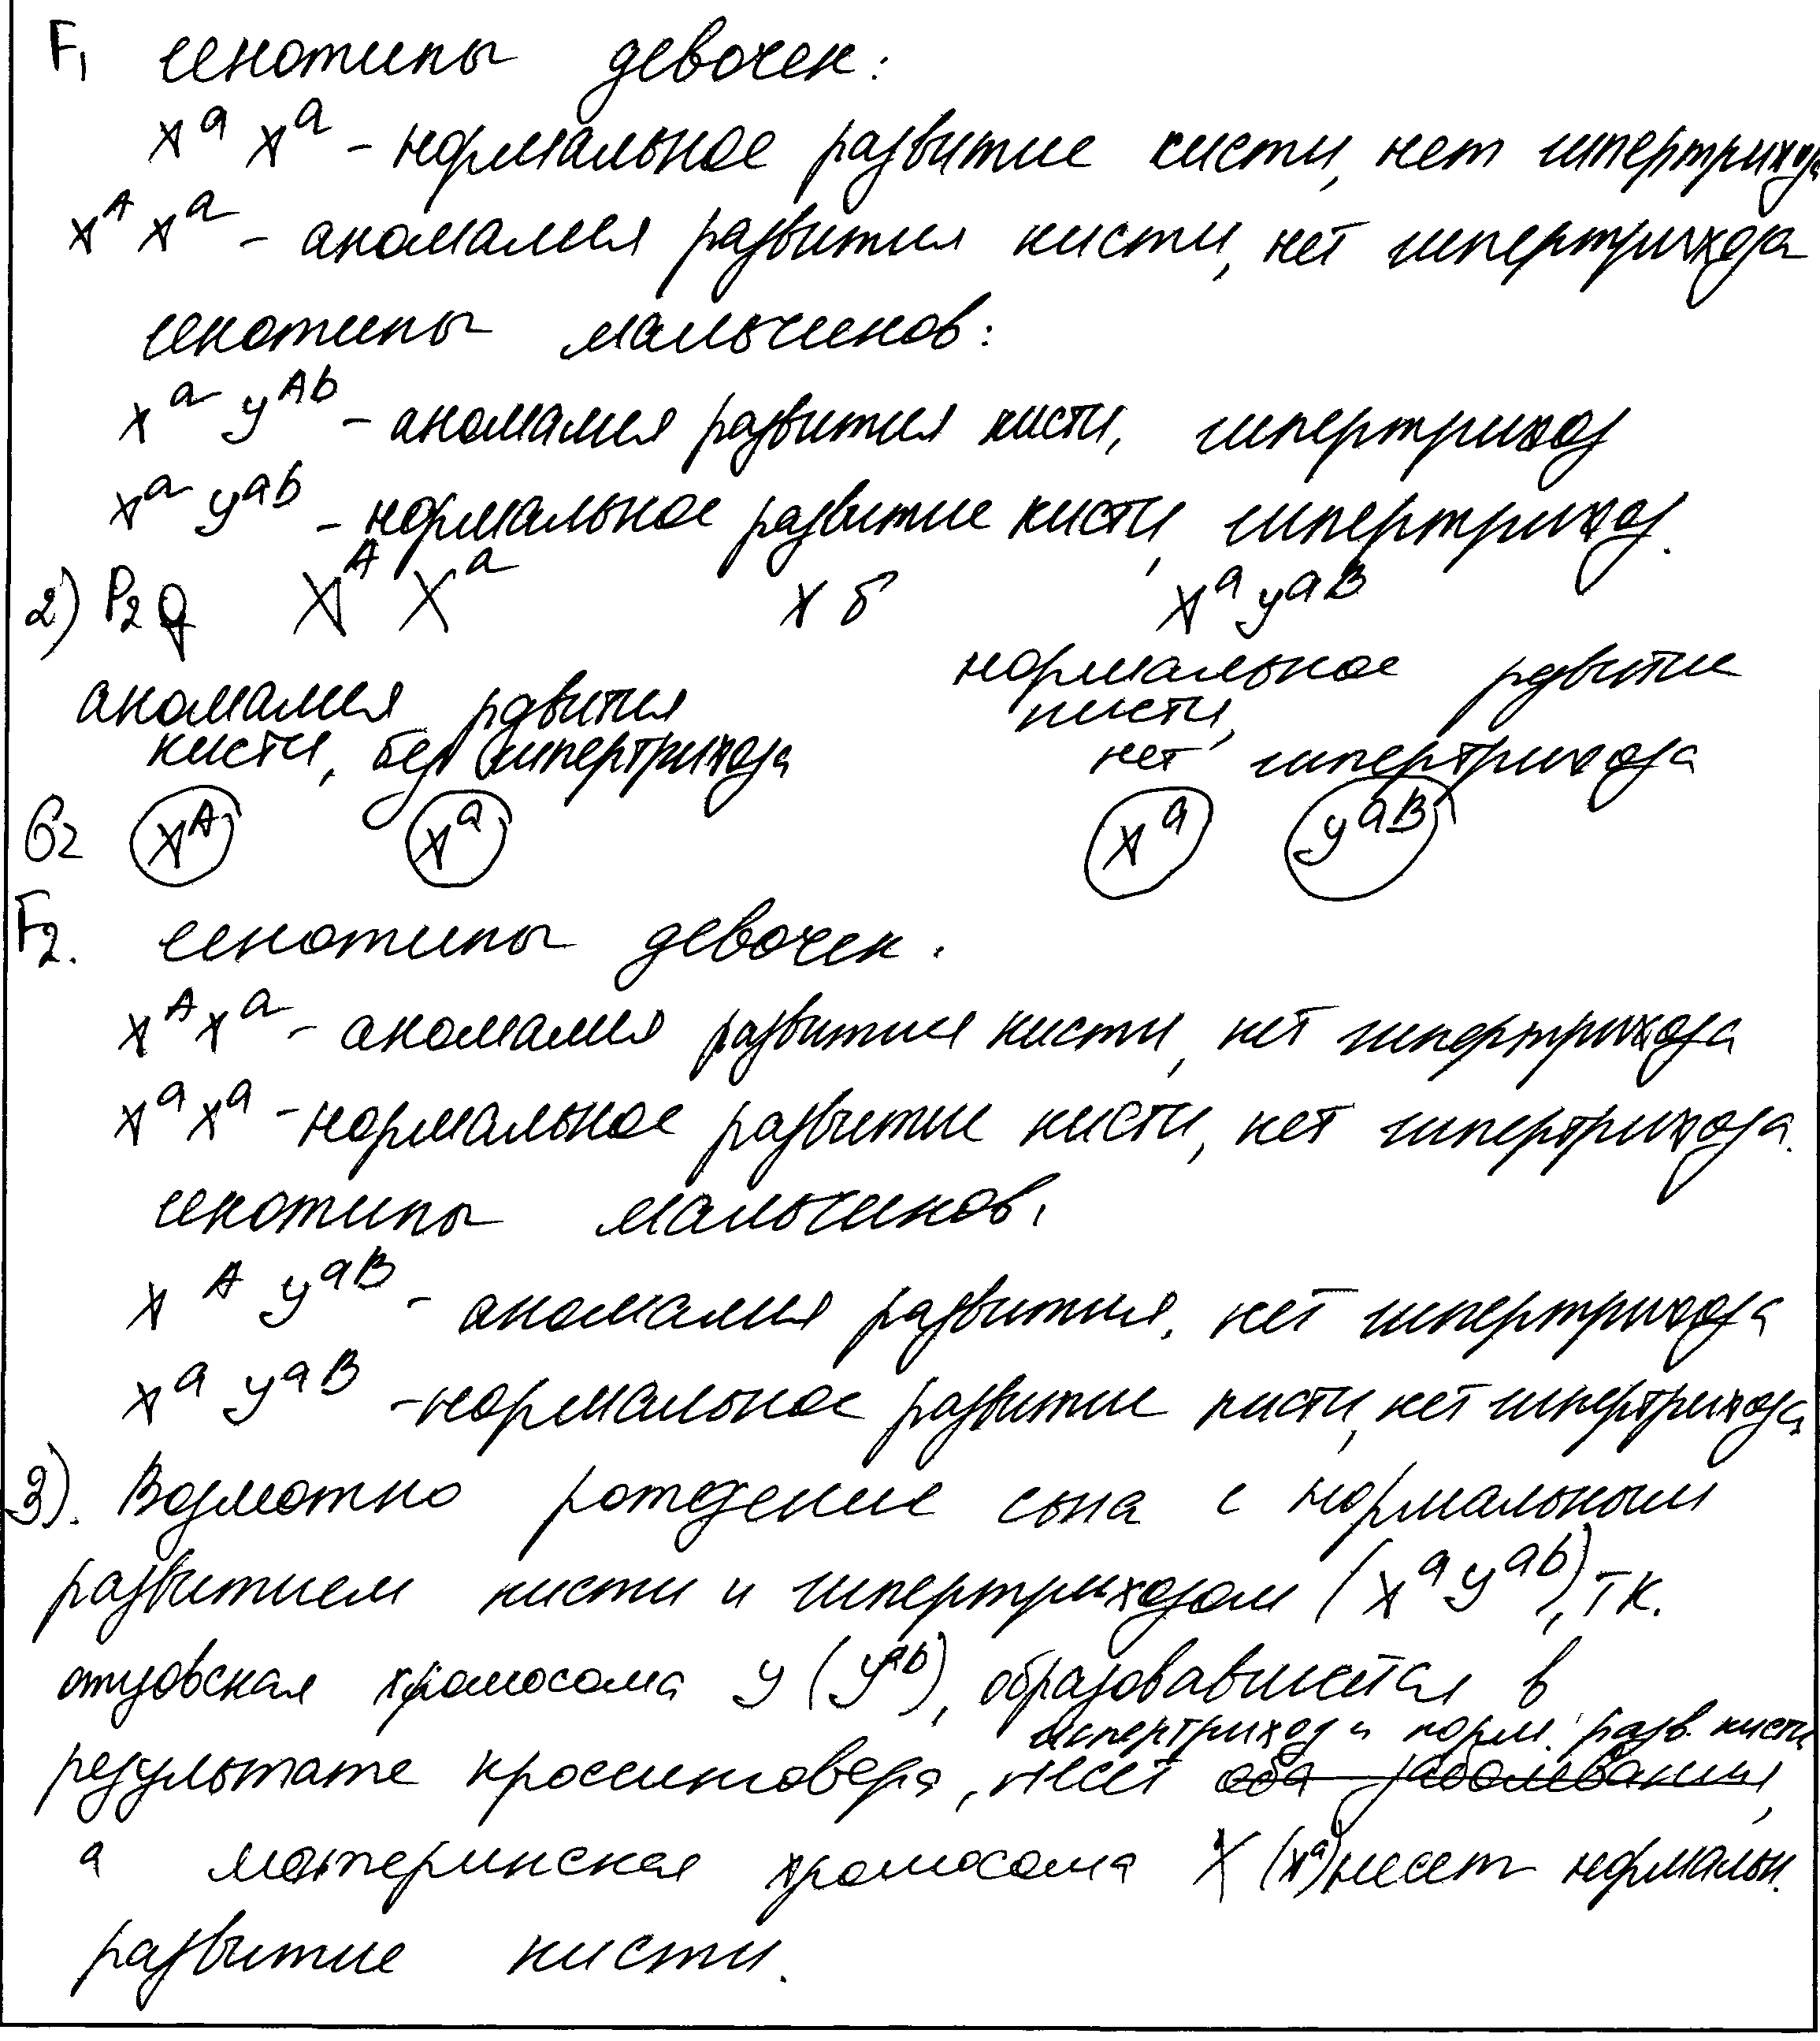 F₁ генотипы девочек:
Xᵃ Xᵃ - нормальное развитие кисти, нет гипертрихоза
Xᴬ Xᵃ - аномалия развития кисти, нет гипертрихоза
генотипы мальчиков:
Xᵃ Yᴬᵇ - аномалия развития кисти, гипертрихоз
Xᵃ Yᵃᵇ - нормальное развитие кисти, гипертрихоз.
2) P₂ ♀ Xᴬ Xᵃ х ♂ Xᵃ Yᵃᴮ
аномалия рзвития нормальное рзвитие
кисти, без гипертрихоза кисти, нет гипертрихоза
G₂ Xᴬ Xᵃ Xᵃ Yᵃᴮ
F₂. генотипы девочек.
Xᴬ Xᵃ - аномалия развития кисти, нет гипертрихоза
Xᵃ Xᵃ - нормальное развитие кисти, нет гипертрихоза.
генотипы мальчиков.
Xᴬ Yᵃᴮ - аномалия развития, нет гипертрихоза
Xᵃ Yᵃᴮ - нормальное развитие кисти, нет гипертрихоза
3). Возможно рождение сына с нормальным
развитием кисти и гипертрихозом (Xᵃ Yᵃᵇ), т.к.
отцовская хромосома Y (Yᵃᵇ), образовавшаяся в
гипертрихоз и норм. разв. кисти
результате кроссинговера, несет оба заболевания,
а материнская хромосома X (Xᵃ) несет нормальн.
развитие кисти.